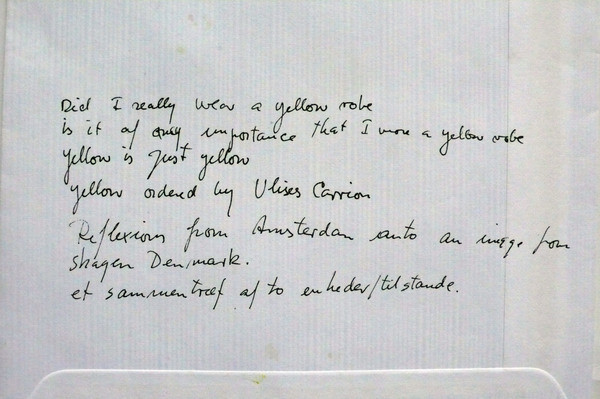 Did I really wear a yellow robe
is it of any importance that I wore a yellow robe
yellow is just yellow
yellow ordered by Ulises Carrion
Reflexions from Amsterdam onto an image from
Skagen Denmark.
et sammentræf af to enheder/tilstande.